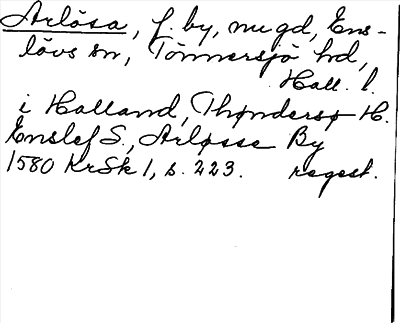 Arlösa, f. by, nu gd, Ens-
lövs sn, Tönnersjö hd,
Hall. l.
i Halland, Thøndersø H.
Enslef S., Arløsse By
1580 KrSk 1, s. 223. regest.